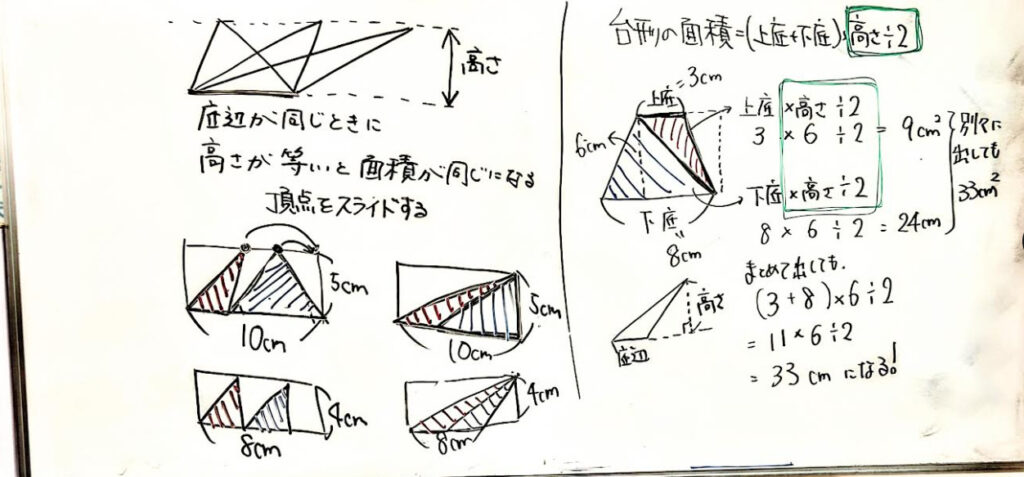 高さ
底辺が同じときに
高さが等いと面積が同じになる
頂点をスライドする
5cm
10cm
5cm
10cm
4cm
8cm
4cm
8cm
台形の面積=(上底+下底)×高さ÷2
上底=3cm
6cm
下底
8cm
上底×高さ÷2
3 × 6 ÷2 = 9cm²
下底×高さ÷2
8 × 6 ÷2 = 24cm
別々に
出しても
33cm²
まとめて出しても、
(3+8)×6÷2
= 11×6÷2
= 33cmになる!
高さ
底辺